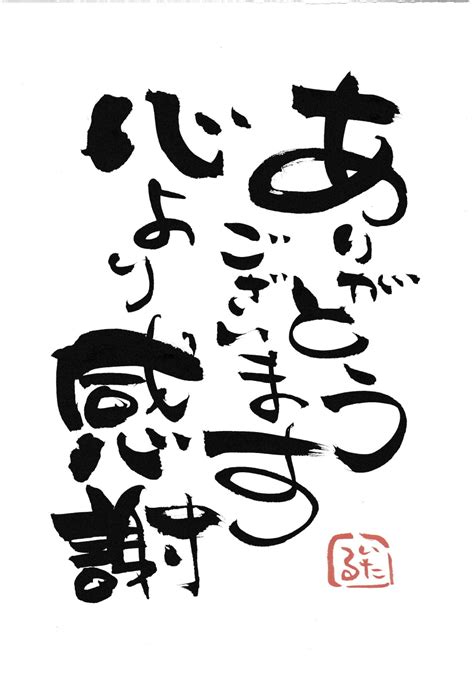 ありがとう
ございます
心より
感謝
いた
る